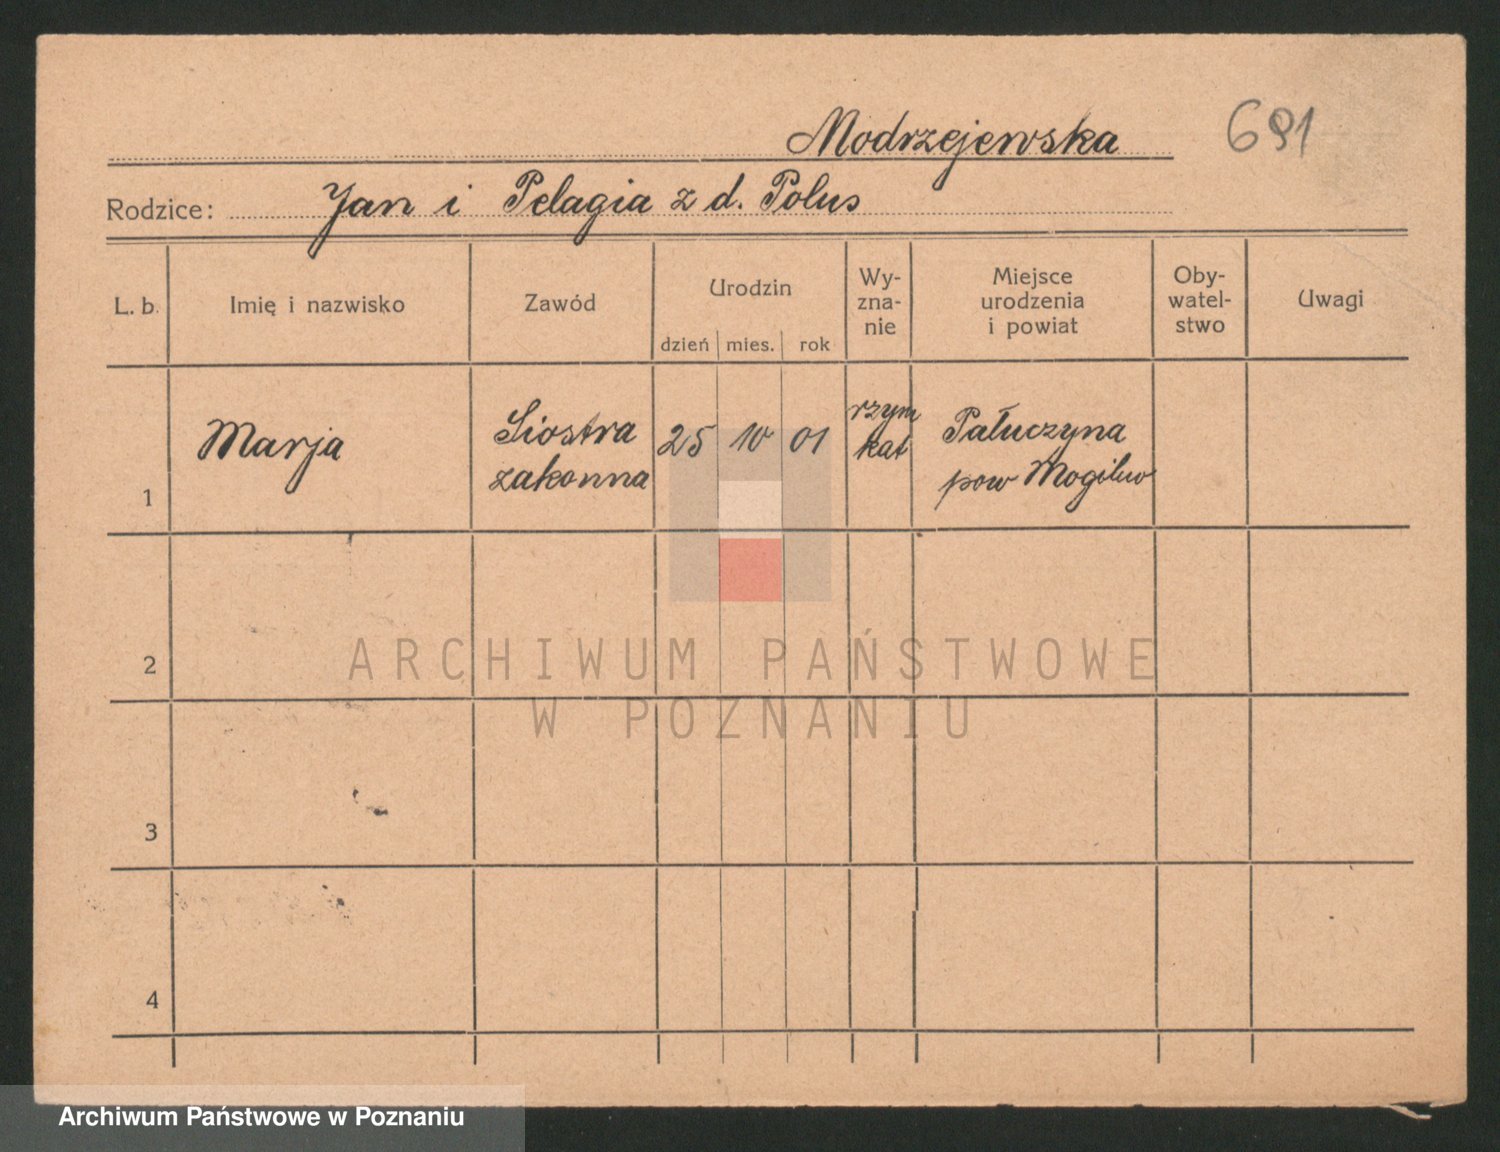 Modrzejewska 691
Rodzice: Jan i Pelagia z d. Polus
L. b. Imię i nazwisko Zawód Urodzin Wy- Miejsce Oby- Uwagi
zna- urodzenia watel-
nie i powiat stwo
dzień mies. rok
1 Marja Siostra 25 10 01 rzym Pałuczyna
zakonna kat pow Mogilno
2
ARCHIWUM PAŃSTWOWE
W POZNANIU
3
4
Archiwum Państwowe w Poznaniu